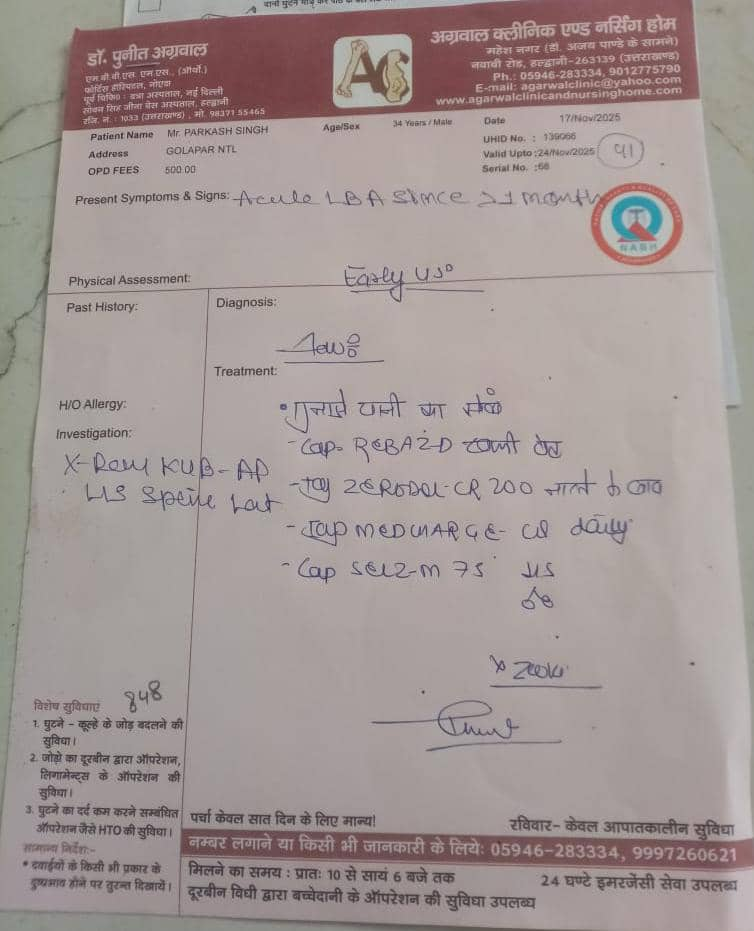 डॉ. पुनीत अग्रवाल
एम.बी.बी.एस. एम.एस., (ऑर्थो)
फोर्टिस हॉस्पिटल, नोएडा
नई दिल्ली
सोबन सिंह जीना बेस अस्पताल, हल्द्वानी
रजि. नं. : 1033 (उत्तराखण्ड), मो. 98371 55465
अग्रवाल क्लीनिक एण्ड नर्सिंग होम
महेश नगर (डॉ. अजय पाण्डे के सामने)
नवाबी रोड, हल्द्वानी-263139 (उत्तराखण्ड)
Ph.: 05946-283334, 9012775790
E-mail: agarwalclinic@yahoo.com
www.agarwalclinicandnursinghome.com
Patient Name Mr. PARKASH SINGH
Age/Sex 34 Years / Male
Date 17/Nov/2025
Address GOLAPAR NTL
UHID No. : 139066
OPD FEES 500.00
Valid Upto :24/Nov/2025
Serial No. :68
Present Symptoms & Signs: Acute LBA since >1 month
NABH
Physical Assessment:
Early
Past History:
Diagnosis:
Treatment:
H/O Allergy:
पानी का सेंक
Investigation:
Cap- REBAZ-D खाली पेट
X-Ray KUB-AP
Tab ZERODOL-CR 200 नाश्ते के बाद
L/S Spine Lat
daily
Cap 75
848
विशेष सुविधाएं
1. घुटने - कूल्हे के जोड़ बदलने की
सुविधा।
2. जोड़ो का दूरबीन द्वारा ऑपरेशन,
लिगामेन्ट्स के ऑपरेशन की
सुविधा।
3. घुटने का दर्द कम करने सम्बंधित
ऑपरेशन जैसे HTO की सुविधा।
सामान्य निर्देश:-
* दवाईयों के किसी भी प्रकार के
दुष्प्रभाव होने पर तुरन्त दिखायें।
पर्चा केवल सात दिन के लिए मान्य!
रविवार- केवल आपातकालीन सुविधा
नम्बर लगाने या किसी भी जानकारी के लिये: 05946-283334, 9997260621
मिलने का समय : प्रातः 10 से सायं 6 बजे तक
24 घण्टे इमरजेंसी सेवा उपलब्ध
दूरबीन विधी द्वारा बच्चेदानी के ऑपरेशन की सुविधा उपलब्ध